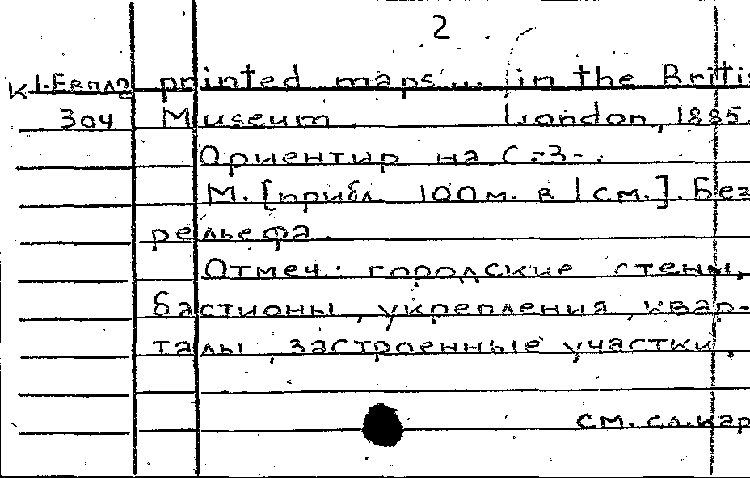 2
К 1-Евпл2 printed maps... in the Britis
304 Museum London, 1885.
Ориентир на С-З-.
М. [прибл. 100м. в 1 см.]. Без
рельефа.
Отмеч.: городские стены,
бастионы, укрепления, квар-
талы, застроенные участки,
см. сл. кар